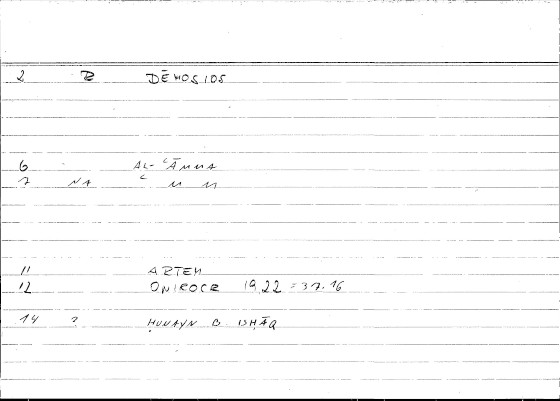 2 B DĒMOSIOS
6 AL-ʿĀMMA
7 NA ʿ M M
11 ARTEM
12 ONIROCR 19,22 = 37.16
14 ? ḤUNAYN B ISḤĀQ